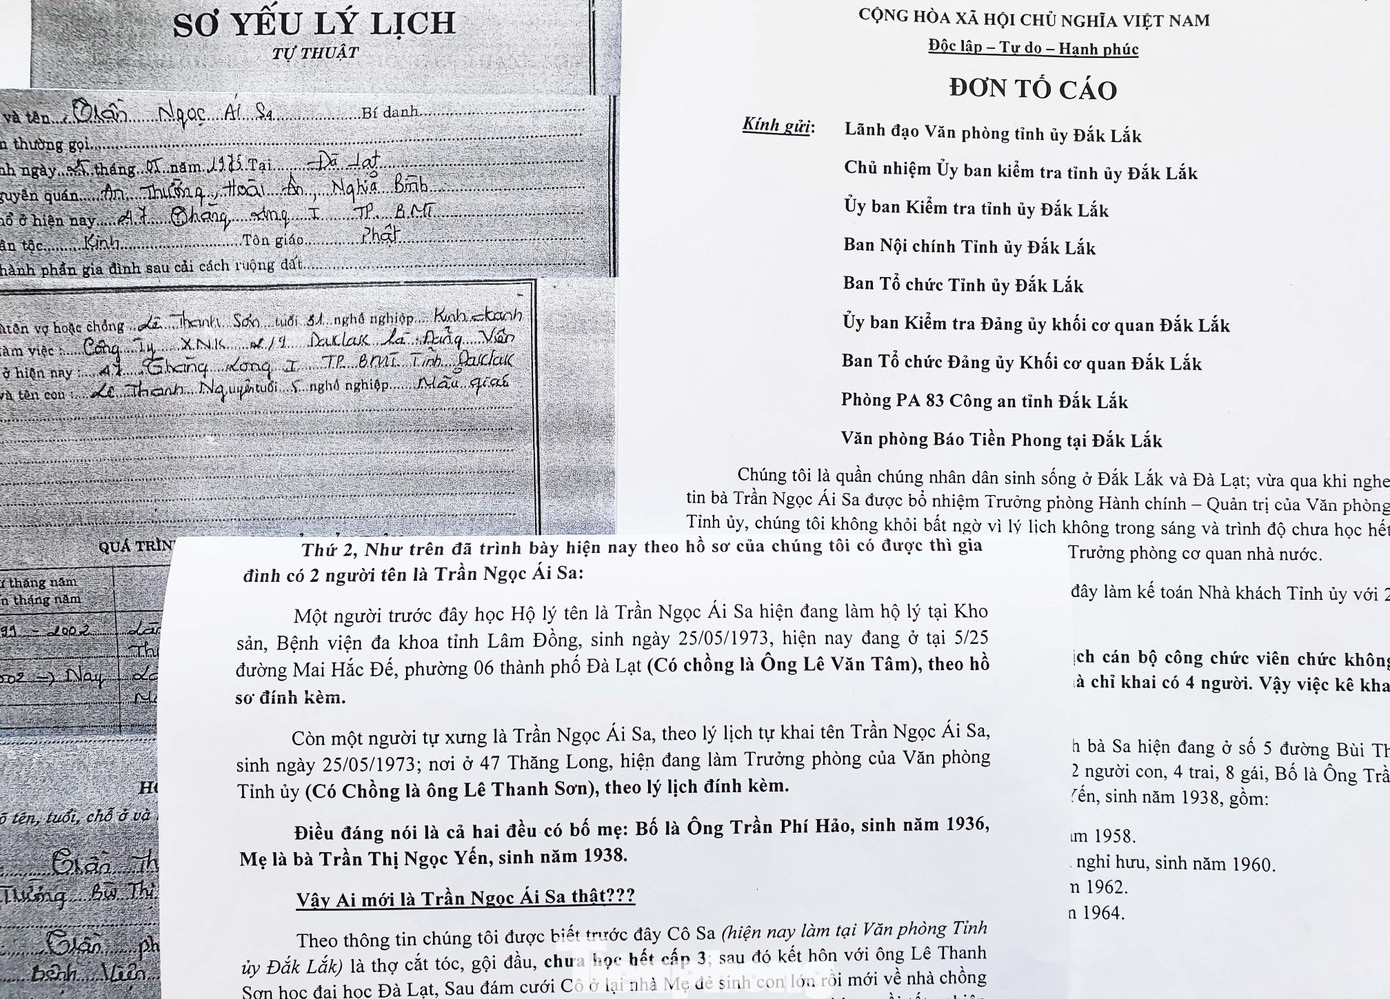 SƠ YẾU LÝ LỊCH
TỰ THUẬT
và tên Trần Ngọc Ái Sa Bí danh
n thường gọi
nh ngày 25 tháng 05 năm 1973 Tại Đà Lạt
guyên quán Ân Thường, Hoài Ân, Nghĩa Bình
hổ ở hiện nay 47 Thăng Long I TP. BMT
ân tộc Kinh Tôn giáo Phật
hành phần gia đình sau cải cách ruộng đất
tên vợ hoặc chồng Lê Thanh Sơn tuổi 31 nghề nghiệp Kinh doanh
làm việc : Công Ty XNK 2/9 Daklak là Đảng Viên
ở hiện nay : 47 Thăng Long I TP BMT Tỉnh Daklak
và tên con : Lê Thanh Nguyên tuổi 5 nghề nghiệp Mẫu giáo
QUÁ TRÌN
ừ tháng năm
n tháng năm
99 - 2002
002 -> Nay
HO
õ tên, tuổi, chỗ ở và
Trần Th
Trường Bùi Thị
Trần ph
Bệnh Viện
CỘNG HÒA XÃ HỘI CHỦ NGHĨA VIỆT NAM
Độc lập – Tự do – Hạnh phúc
ĐƠN TỐ CÁO
Kính gửi: Lãnh đạo Văn phòng tỉnh ủy Đắk Lắk
Chủ nhiệm Ủy ban kiểm tra tỉnh ủy Đắk Lắk
Ủy ban Kiểm tra tỉnh ủy Đắk Lắk
Ban Nội chính Tỉnh ủy Đắk Lắk
Ban Tổ chức Tỉnh ủy Đắk Lắk
Ủy ban Kiểm tra Đảng ủy khối cơ quan Đắk Lắk
Ban Tổ chức Đảng ủy Khối cơ quan Đắk Lắk
Phòng PA 83 Công an tỉnh Đắk Lắk
Văn phòng Báo Tiền Phong tại Đắk Lắk
Chúng tôi là quần chúng nhân dân sinh sống ở Đắk Lắk và Đà Lạt; vừa qua khi nghe
tin bà Trần Ngọc Ái Sa được bổ nhiệm Trưởng phòng Hành chính – Quản trị của Văn phòng
Tỉnh ủy, chúng tôi không khỏi bất ngờ vì lý lịch không trong sáng và trình độ chưa học hết
Trưởng phòng cơ quan nhà nước.
đây làm kế toán Nhà khách Tỉnh ủy với 2
ịch cán bộ công chức viên chức không
à chỉ khai có 4 người. Vậy việc kê kha
h bà Sa hiện đang ở số 5 đường Bùi Th
2 người con, 4 trai, 8 gái, Bố là Ông Trầ
Yến, sinh năm 1938, gồm:
ăm 1958.
. nghỉ hưu, sinh năm 1960.
n 1962.
n 1964.
Thứ 2, Như trên đã trình bày hiện nay theo hồ sơ của chúng tôi có được thì gia
đình có 2 người tên là Trần Ngọc Ái Sa:
Một người trước đây học Hộ lý tên là Trần Ngọc Ái Sa hiện đang làm hộ lý tại Kho
sản, Bệnh viện đa khoa tỉnh Lâm Đồng, sinh ngày 25/05/1973, hiện nay đang ở tại 5/25
đường Mai Hắc Đế, phường 06 thành phố Đà Lạt (Có chồng là Ông Lê Văn Tâm), theo hồ
sơ đính kèm.
Còn một người tự xưng là Trần Ngọc Ái Sa, theo lý lịch tự khai tên Trần Ngọc Ái Sa,
sinh ngày 25/05/1973; nơi ở 47 Thăng Long, hiện đang làm Trưởng phòng của Văn phòng
Tỉnh ủy (Có Chồng là ông Lê Thanh Sơn), theo lý lịch đính kèm.
Điều đáng nói là cả hai đều có bố mẹ: Bố là Ông Trần Phí Hảo, sinh năm 1936,
Mẹ là bà Trần Thị Ngọc Yến, sinh năm 1938.
Vậy Ai mới là Trần Ngọc Ái Sa thật???
Theo thông tin chúng tôi được biết trước đây Cô Sa (hiện nay làm tại Văn phòng Tỉnh
ủy Đắk Lắk) là thợ cắt tóc, gội đầu, chưa học hết cấp 3; sau đó kết hôn với ông Lê Thanh
Sơn học đại học Đà Lạt, Sau đám cưới Cô ở lại nhà Mẹ đẻ sinh con lớn rồi mới về nhà chồng